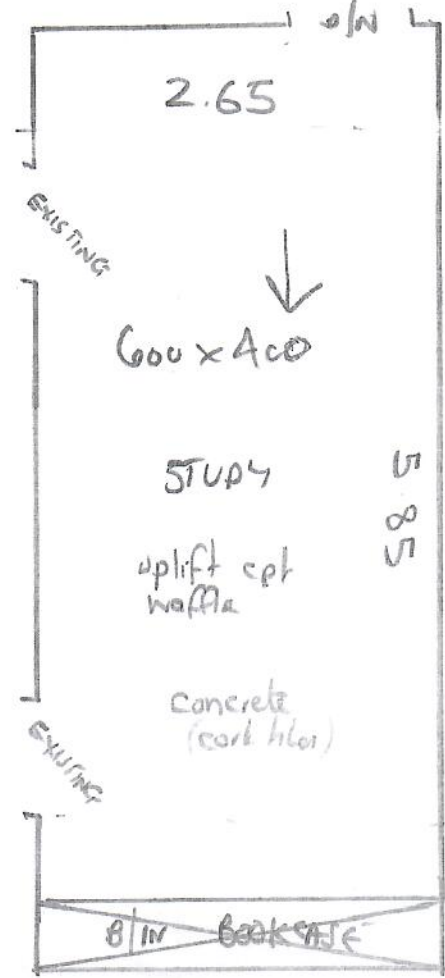 B/N
2.65
EXISTING
600 x 400
STUDY
5.85
uplift cpt
waffle
concrete
(cork tiles)
EXISTING
B/IN BOOKCASE